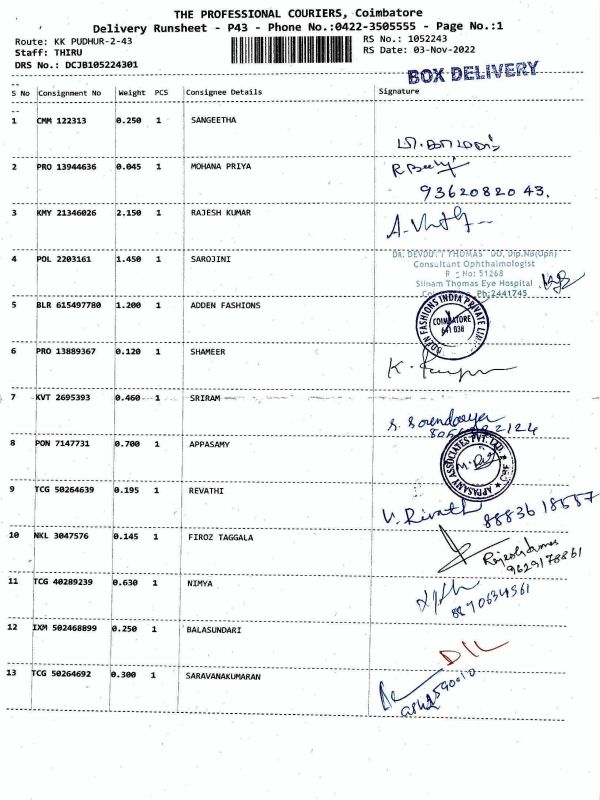 THE PROFESSIONAL COURIERS, Coimbatore
Delivery Runsheet - P43 - Phone No.:0422-3505555 - Page No.:1
Route: KK PUDHUR-2-43 RS No.: 1052243
Staff: THIRU RS Date: 03-Nov-2022
DRS No.: DCJB105224301
BOX DELIVERY
S No Consignment No Weight PCS Consignee Details Signature
1 CMM 122313 0.250 1 SANGEETHA
2 PRO 13944636 0.045 1 MOHANA PRIYA
9362082043.
3 KMY 21346026 2.150 1 RAJESH KUMAR
4 POL 2203161 1.450 1 SAROJINI
Consultant Ophthalmologist
No: 51268
Siloam Thomas Eye Hospital
Ph:2441745
5 BLR 615497780 1.200 1 ADDEN FASHIONS
FASHIONS INDIA PRIVATE
COIMBATORE
641 038
6 PRO 13889367 0.120 1 SHAMEER
7 KVT 2695393 0.460 1 SRIRAM
8 PON 7147731 0.700 1 APPASAMY
APPASAMY ASSOCIATES PVT. LTD.
CBE
9 TCG 50264639 0.195 1 REVATHI
10 NKL 3047576 0.145 1 FIROZ TAGGALA
9629178861
11 TCG 40289239 0.630 1 NIMYA
12 IXM 502468899 0.250 1 BALASUNDARI
13 TCG 50264692 0.300 1 SARAVANAKUMARAN